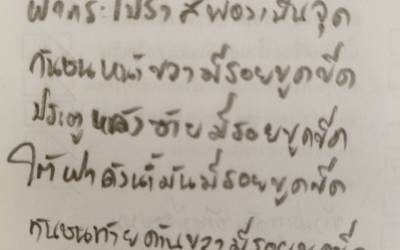 ฝากระโปรง สีพองเป็นจุด
กันชนหน้าขวามีรอยขูดขีด
ประตูหลังซ้ายมีรอยขูดขีด
ใต้ฝาถังน้ำมันมีรอยขูดขีด
กันชนท้ายด้านขวามีรอยขูดขีด